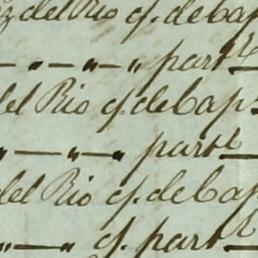 del Rio cf. de Cap
— " — " — " part
del Rio cf. de Cap
" — " — " part
del Rio cf. de Cap
" — " cf. part